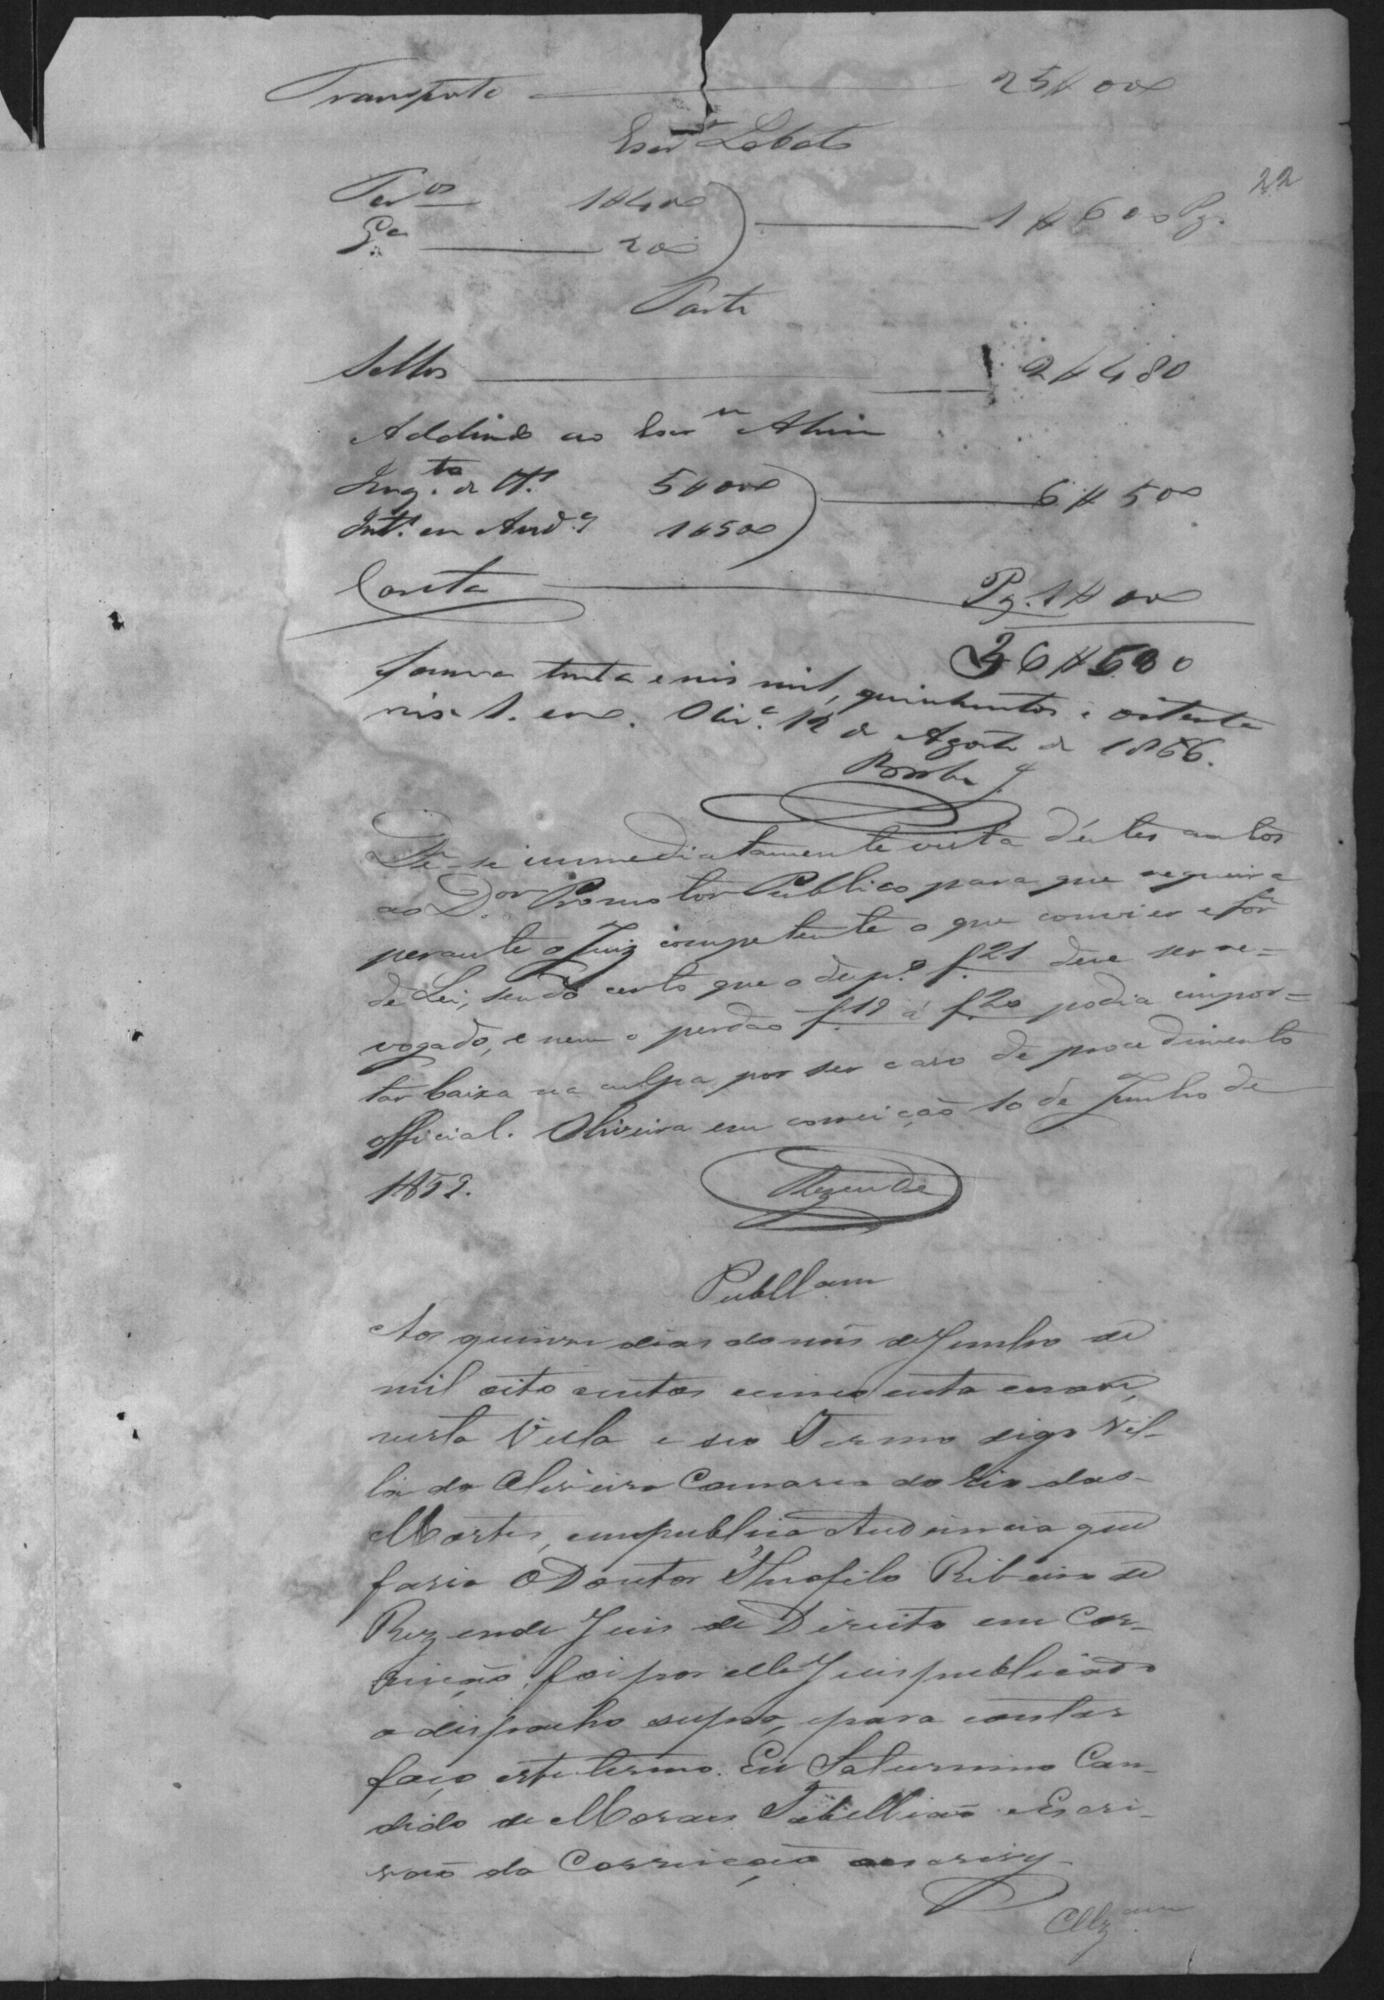 Transporte 25#000
Escr.m Lobato
22
Ter.os 1#400
G.a 200 1#600 Pg.
Parte
Sellos 2#480
Addindo ao Escr.m Alvim
Inq.to de tt.s 5#000
Int.s em Aud.a 1#500 6#500
Conta Pg. 1#000
36#580
Somma trinta e seis mil, quinhentos e oitenta
reis. S. e o. Oliv.a 12 de Agosto de 1866.
Dê-se immediatamente vista d'estes autos
ao D.or Promotor Publico para que requeira
perante o Juiz competente o que convier e for
de Lei, sendo certo que o desp.o f. 21 deve ser re=
vogado, e nem o perdão f. 19 á f. 20 podia impor=
tar baixa na culpa, por ser caso de procedimento
official. Oliveira em correição 10 de Junho de
1859.
Rezende
Publlcam
Aos quinze dias do mês de Junho de
mil oito centos cincoenta e nove,
nesta Villa e seo Termo digo Vil-
la da Oliveira Comarca do Rio das
Mortes, em publica Audiencia que
fasia O Doutor Theofilo Ribeiro de
Rezende Juis de Direito em Cor-
reição, foi por elle Juis publicado
o despacho supra, e para constar
faço este termo. Eu Saturnino Can-
dido de Moraes Tabellião e Escri-
vão da Correição o escrivy
Cllz.am